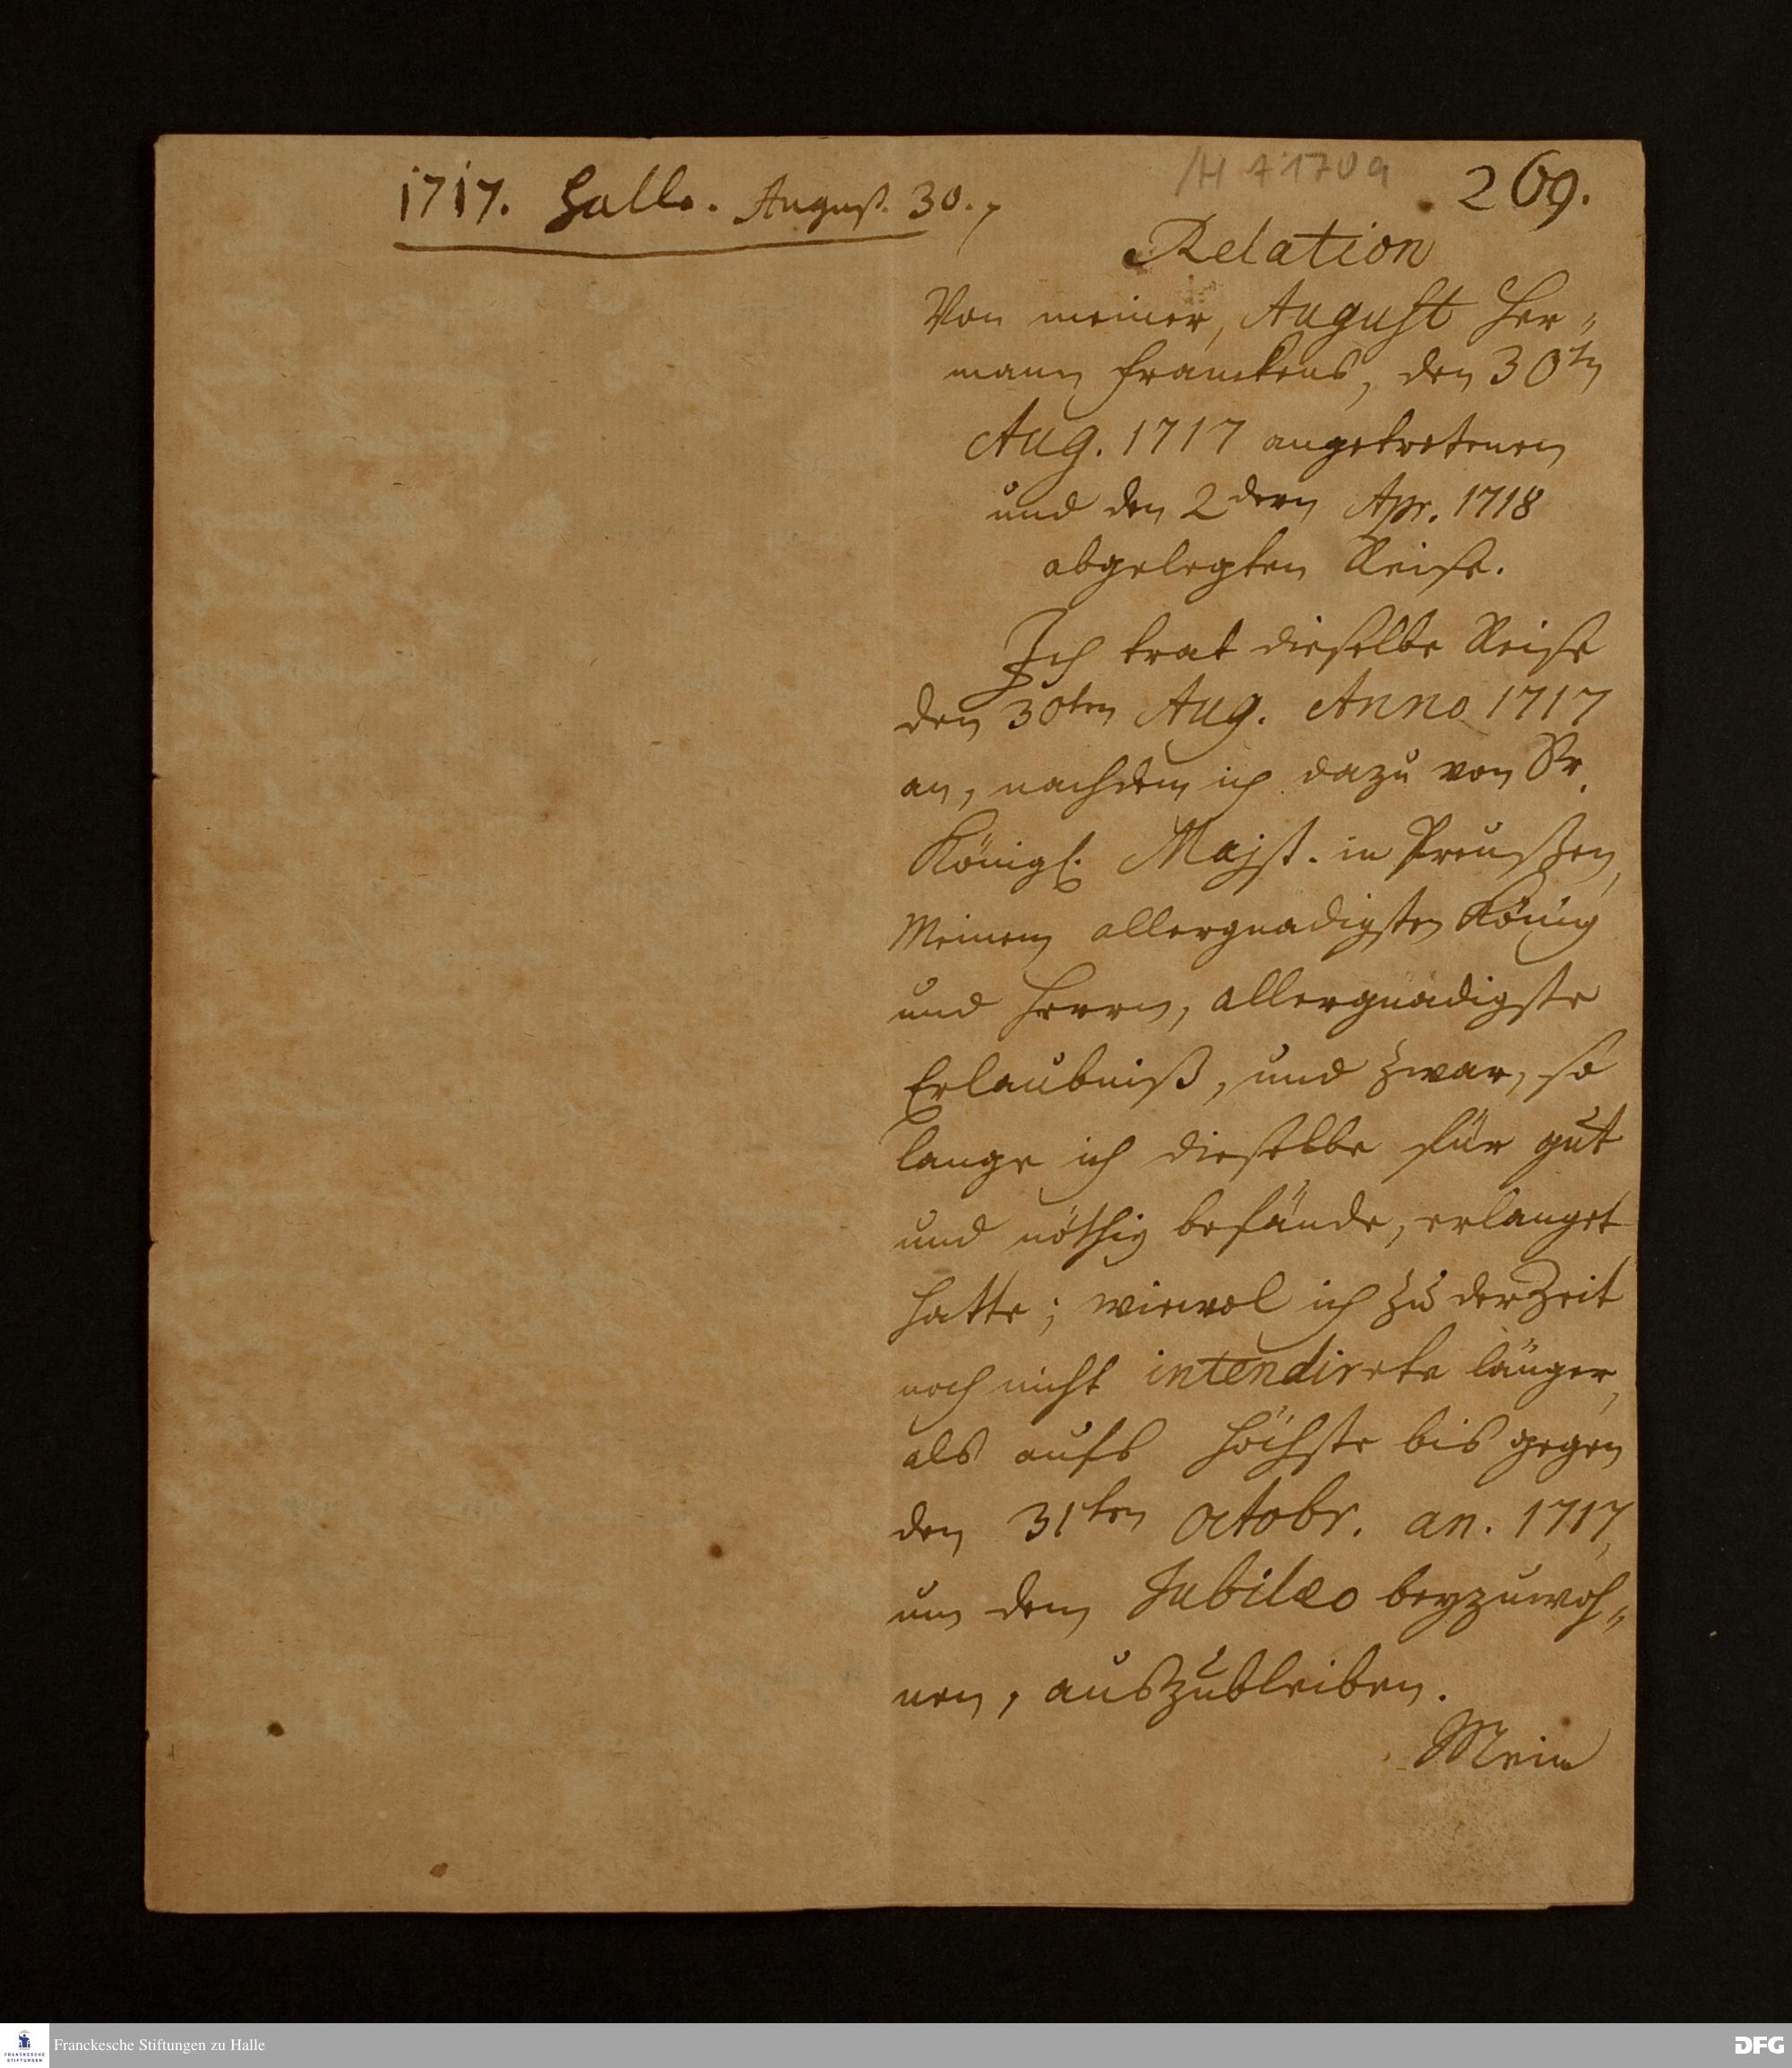 1717. Halle. August. 30.
269.
Relation
Von meiner, August Her=
mann Franckens, den 30ten
Aug. 1717 angetretenen
und den 2dern Apr. 1718
abgelegten Reise.
Ich trat dieselbe Reise
den 30ten Aug. Anno 1717
an, nachdem ich dazu von Sr.
Königl. Majst. in Preußen,
Meinem allergnädigsten König
und Herrn, allergnädigste
Erlaubniß, und zwar, so
lange ich dieselbe für gut
und nöthig befände, erlanget
hatte; wiewol ich zu der Zeit
noch nicht intendirete länger,
als aufs höchste bis gegen
den 31ten Octobr. an. 1717,
um dem Jubilæo beyzuwoh=
nen, auszubleiben.
Mein
FRANCKESCHE
STIFTUNGEN
Franckesche Stiftungen zu Halle
DFG